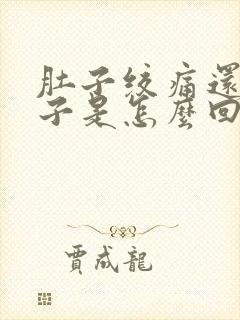 肚子絞痛還
子是怎麼回
賈成龍